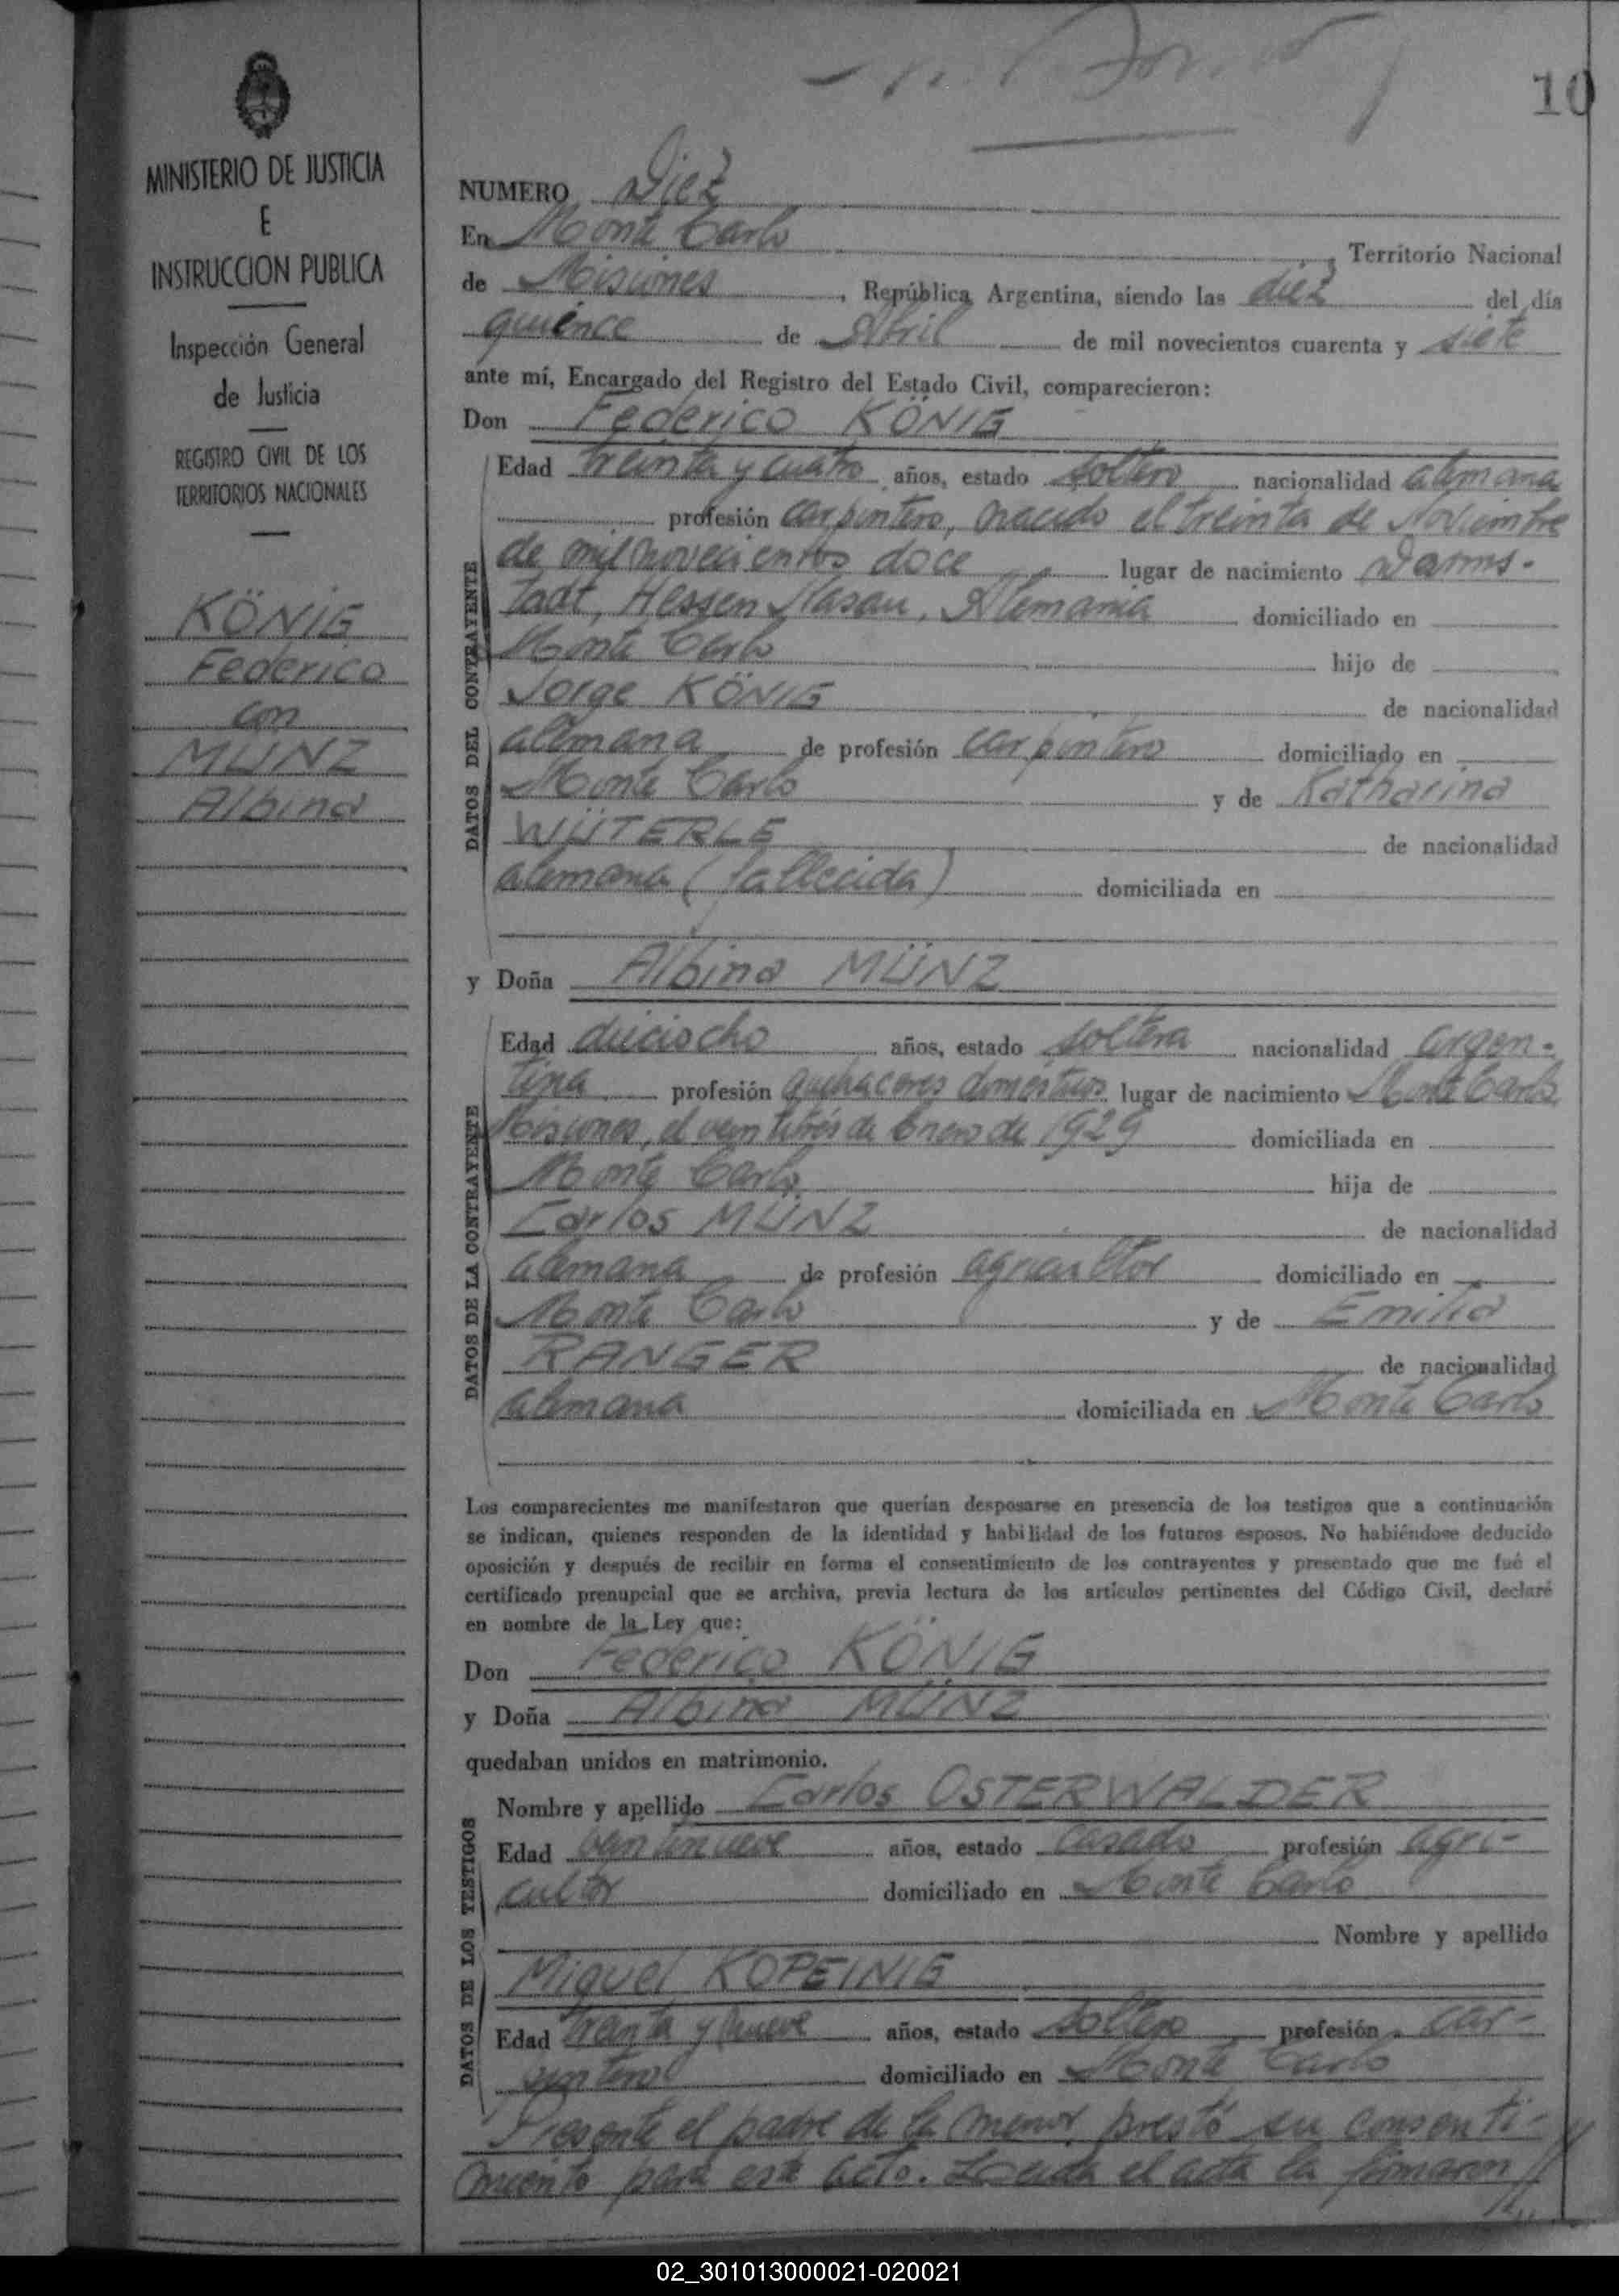 10
MINISTERIO DE JUSTICIA
E
INSTRUCCION PUBLICA
Inspección General
de Justicia
REGISTRO CIVIL DE LOS
TERRITORIOS NACIONALES
KÖNIG
Federico
con
MÜNZ
Albina
NUMERO Diez
En Monte Carlo, Territorio Nacional
de Misiones, República Argentina, siendo las diez del día
quince de Abril de mil novecientos cuarenta y siete
ante mí, Encargado del Registro del Estado Civil, comparecieron:
Don Federico KÖNIG
DATOS DEL CONTRAYENTE
Edad treinta y cuatro años, estado soltero nacionalidad alemana
profesión carpintero, nacido el treinta de Noviembre
de mil novecientos doce lugar de nacimiento Darms-
tadt, Hessen Nasau, Alemania domiciliado en
Monte Carlo hijo de
Jorge KÖNIG de nacionalidad
alemana de profesión carpintero domiciliado en
Monte Carlo y de Katharina
WÜTERLE de nacionalidad
alemana (fallecida) domiciliada en
y Doña Albina MÜNZ
DATOS DE LA CONTRAYENTE
Edad dieciocho años, estado soltera nacionalidad argen-
tina profesión quehaceres domésticos lugar de nacimiento Monte Carlo
Misiones, el veintitrés de Enero de 1929 domiciliada en
Monte Carlo hija de
Carlos MÜNZ de nacionalidad
alemana de profesión agricultor domiciliado en
Monte Carlo y de Emilia
RANGER de nacionalidad
alemana domiciliada en Monte Carlo
Los comparecientes me manifestaron que querían desposarse en presencia de los testigos que a continuación
se indican, quienes responden de la identidad y habilidad de los futuros esposos. No habiéndose deducido
oposición y después de recibir en forma el consentimiento de los contrayentes y presentado que me fué el
certificado prenupcial que se archiva, previa lectura de los artículos pertinentes del Código Civil, declaré
en nombre de la Ley que:
Don Federico KÖNIG
y Doña Albina MÜNZ
quedaban unidos en matrimonio.
DATOS DE LOS TESTIGOS
Nombre y apellido Carlos OSTERWALDER
Edad veintinueve años, estado casado profesión agri-
cultor domiciliado en Monte Carlo
Nombre y apellido
Miguel KOPEINIG
Edad treinta y nueve años, estado soltero profesión car-
pintero domiciliado en Monte Carlo
Presente el padre de la menor, prestó su consenti-
miento para este acto. Leída el acta la firmaron //
02_301013000021-020021